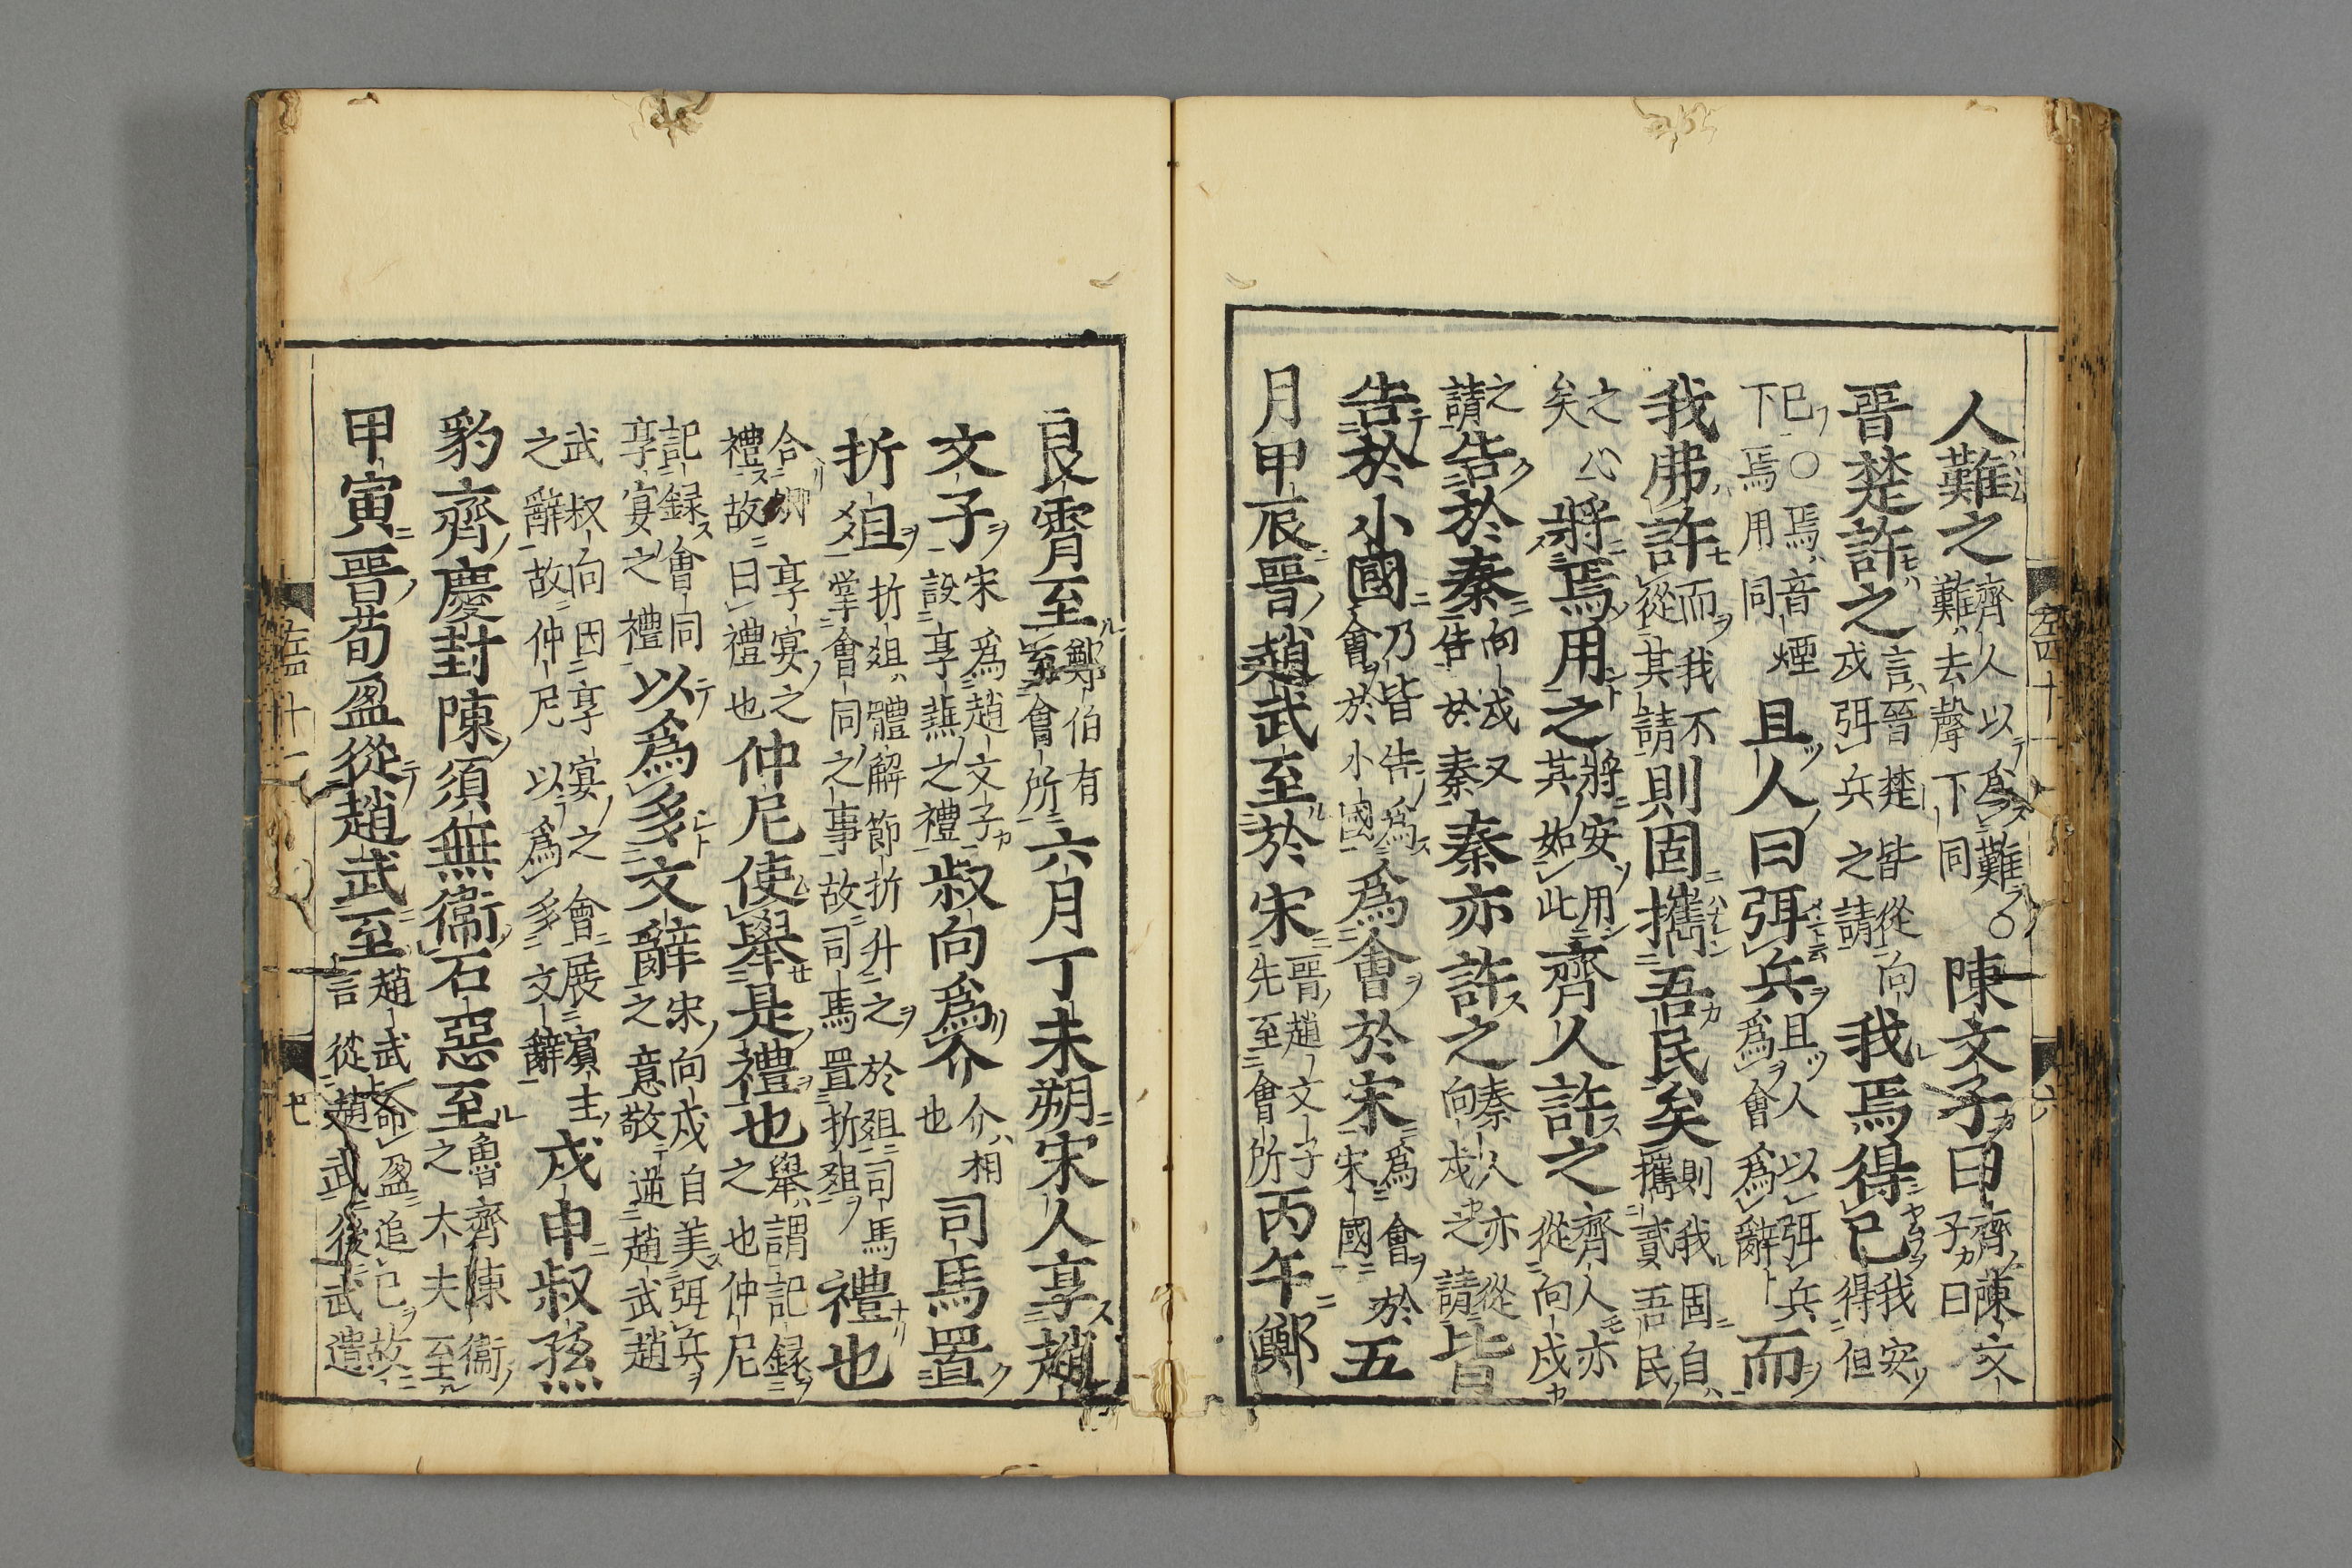 左四十一　六
人難之齊人以為難○難去聲下同陳文子曰齊陳文子曰
晉楚許之言晉楚皆從向戌弭兵之請我焉得已我安得但
已○焉音煙下焉用同且人曰弭兵且人以弭兵為會為辭而
我弗許而我不從其請則固攜吾民矣則我固自攜貳吾民
之心矣將焉用之將安用其如此齊人許之齊人亦從向戌
之請告於秦向戌又告於秦秦亦許之秦人亦從向戌之請皆
告於小國乃皆告為會於小國為會於宋為會於宋國五
月甲辰晉趙武至於宋晉趙文子先至會所丙午鄭
良霄至鄭伯有至會所六月丁未朔宋人享趙
文子宋為趙文子設享燕之禮叔向為介介相也司馬置
折俎折俎體解節折升之於俎司馬掌會同之事故司馬置折俎禮也
合卿享宴之禮故曰禮也仲尼使舉是禮也舉謂記録之也仲尼
記録會同享宴之禮以為多文辭宋向戌自美弭兵之意敬逆趙武趙
武叔向因享宴之會展賓主之辭故仲尼以為多文辭戊申叔孫
豹齊慶封陳須無衛石惡至魯齊陳衛之大夫至
甲寅晉荀盈從趙武至趙武命盈追己故言從趙武後武遣
左四十一　七